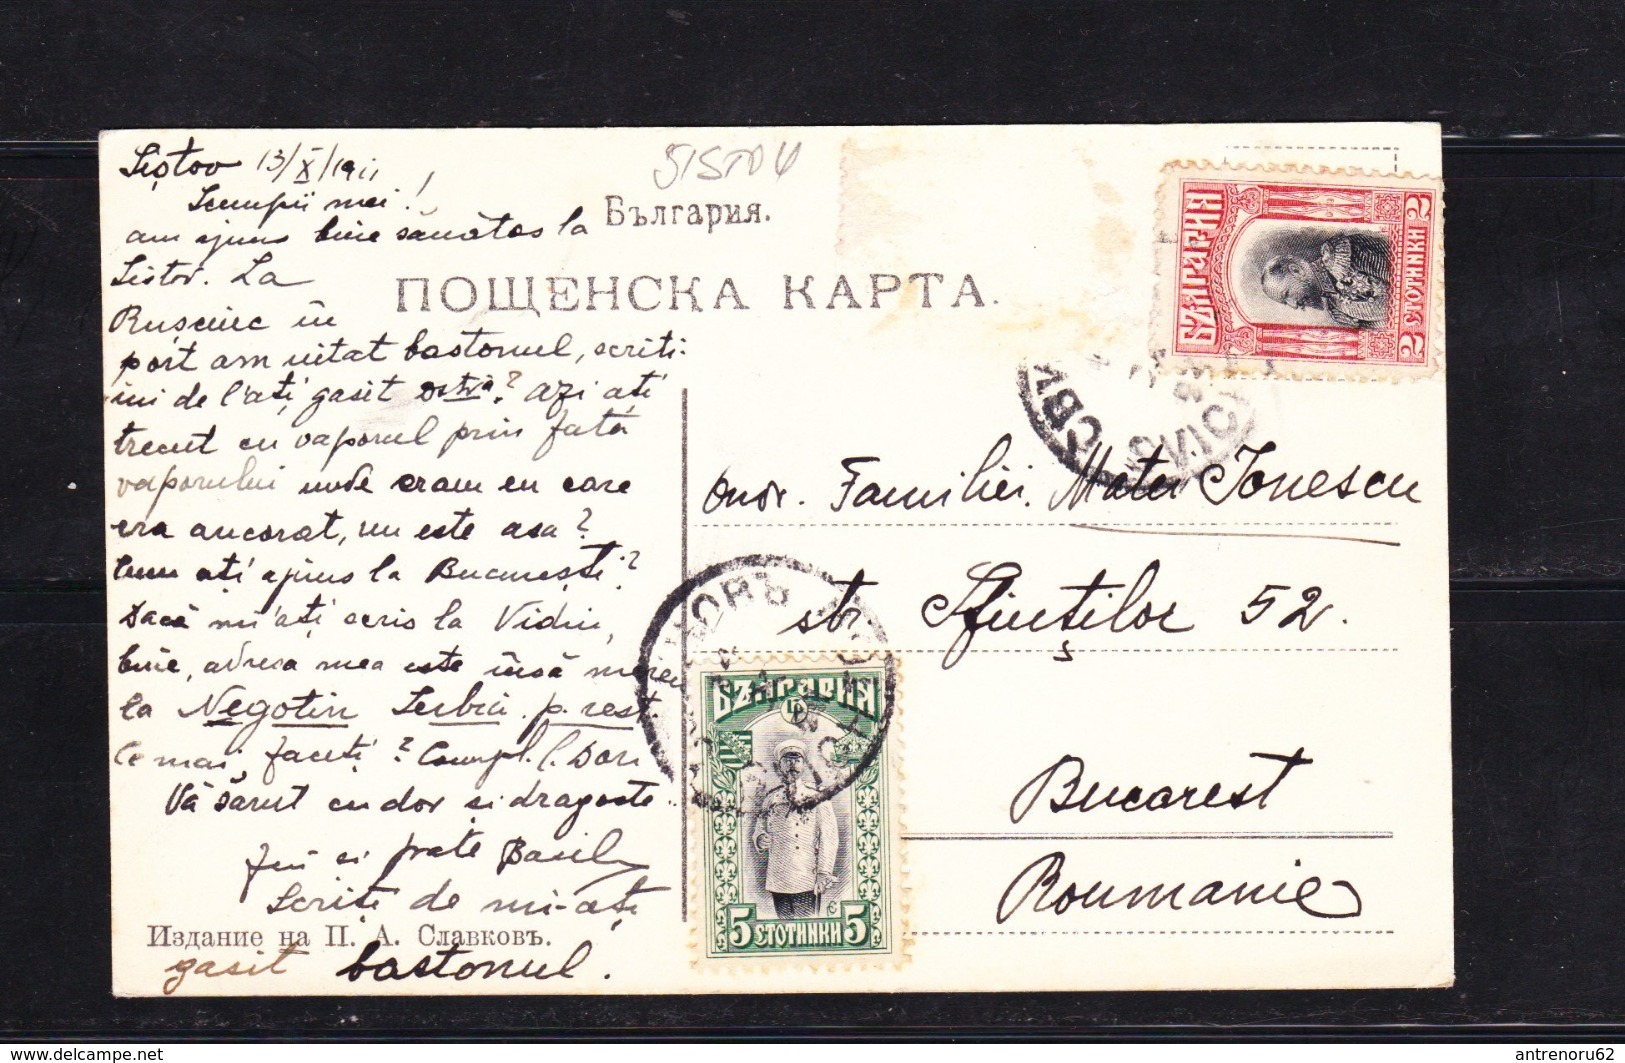 Siștov 13/X/1911
Scumpii mei!
am ajuns bine sănătos la
Sistov. La
Rusciuc în
port am uitat bastonul, scriti-
mi de l'ați gasit Dstră? azi ati
trecut cu vaporul prin fata
vaporului unde eram cu care
era ancorat, nu este asa?
Cum ați ajuns la București?
Dacă mi'ați scris la Vidin,
bine, adresa mea este însă mereu
la Negotin Serbia p. rest.
Ce mai faceți? Compl. l. Dori
Vă sarut cu dor si dragoste
fiu si frate Basil
Scriti de mi-ați
gasit bastonul.
SISTOV
България.
ПОЩЕНСКА КАРТА.
Издание на П. А. Славковъ.
БЪЛГАРИЯ
2 СТОТИНКИ 2
Onor. Familiei Matei Ionescu
str Sfinților 52.
Bucarest
Roumanie
БЪЛГАРИЯ
5 СТОТИНКИ 5
http://www.delcampe.net
antrenoru62